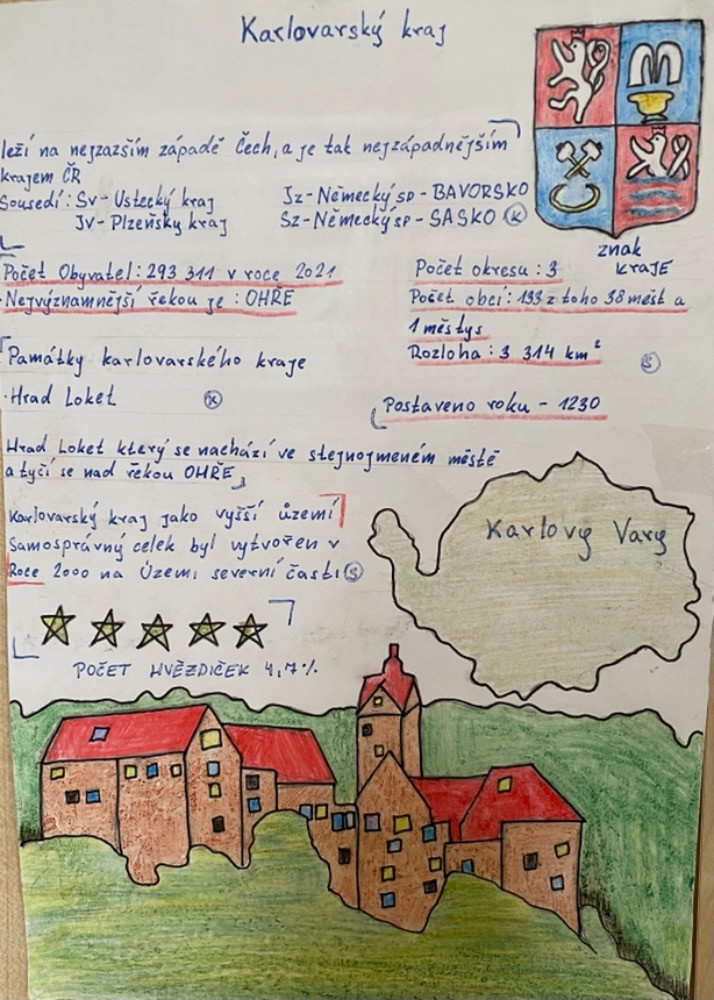 Karlovarský kraj
leží na nejzazším západě Čech, a je tak nejzápadnějším
krajem ČR
Sousedí: Sv - Ustecký kraj
Jv - Plzeňsky kraj
Jz - Německý sp - BAVORSKO
Sz - Německý sp - SASKO K
znak
KRAJE
Počet Obyvatel: 293 311 v roce 2021
Nejvýznamnější řekou je: OHŘE
Počet okresu: 3
Počet obcí: 133 z toho 38 měst a
1 městys
Rozloha: 3 314 km²
S
Památky karlovarského kraje
· Hrad Loket K
Postaveno roku - 1230
Hrad Loket který se nachází ve stejnojmeném městě
a tyčí se nad řekou OHŘE
Karlovarský kraj jako vyšší území
Samosprávný celek byl vytvořen v
Roce 2000 na Územi severní časti S
Karlovy Vary
POČET HVĚZDIČEK 4,7%